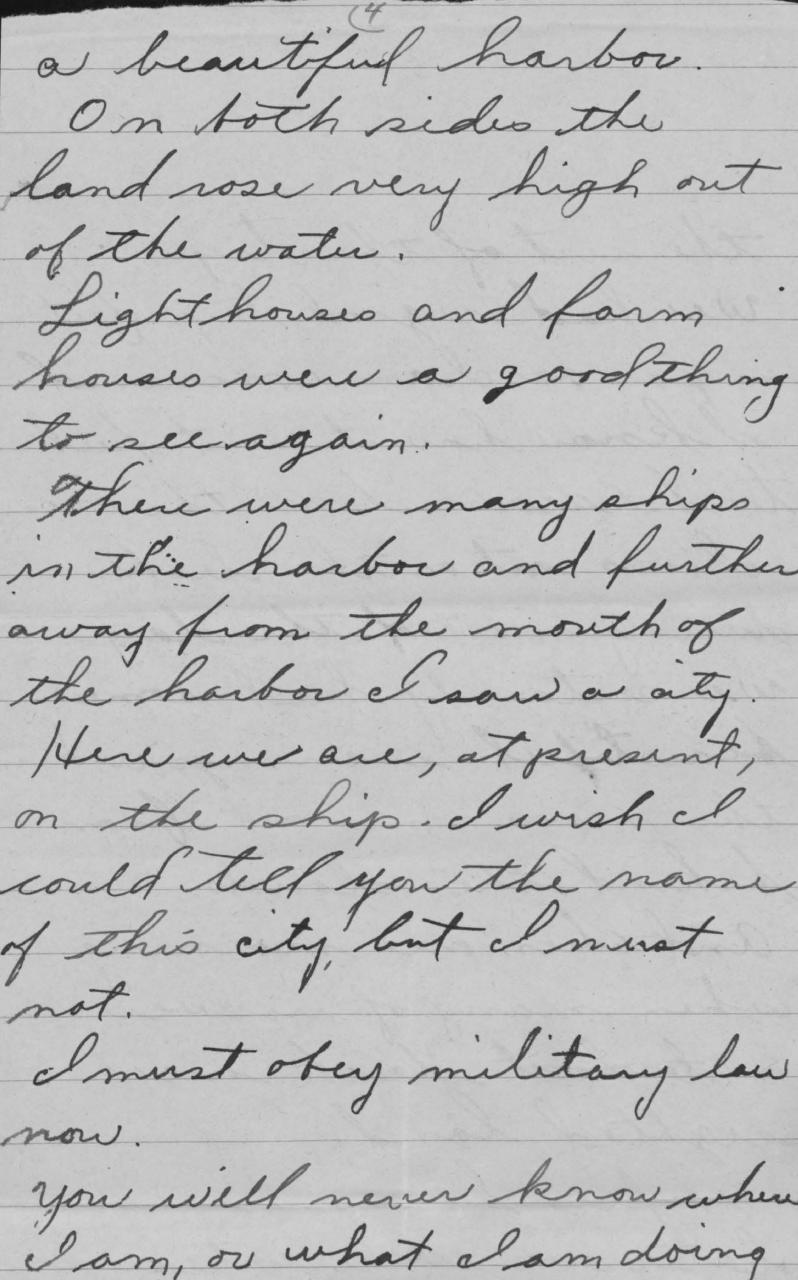 (4
a beautiful harbor.
On both sides the
land rose very high out
of the water.
Lighthouses and farm
houses were a good thing
to see again.
There were many ships
in the harbor and further
away from the mouth of
the harbor I saw a city.
Here we are, at present,
on the ship. I wish I
could tell you the name
of this city, but I must
not.
I must obey military law
now.
You will never know where
I am, or what I am doing